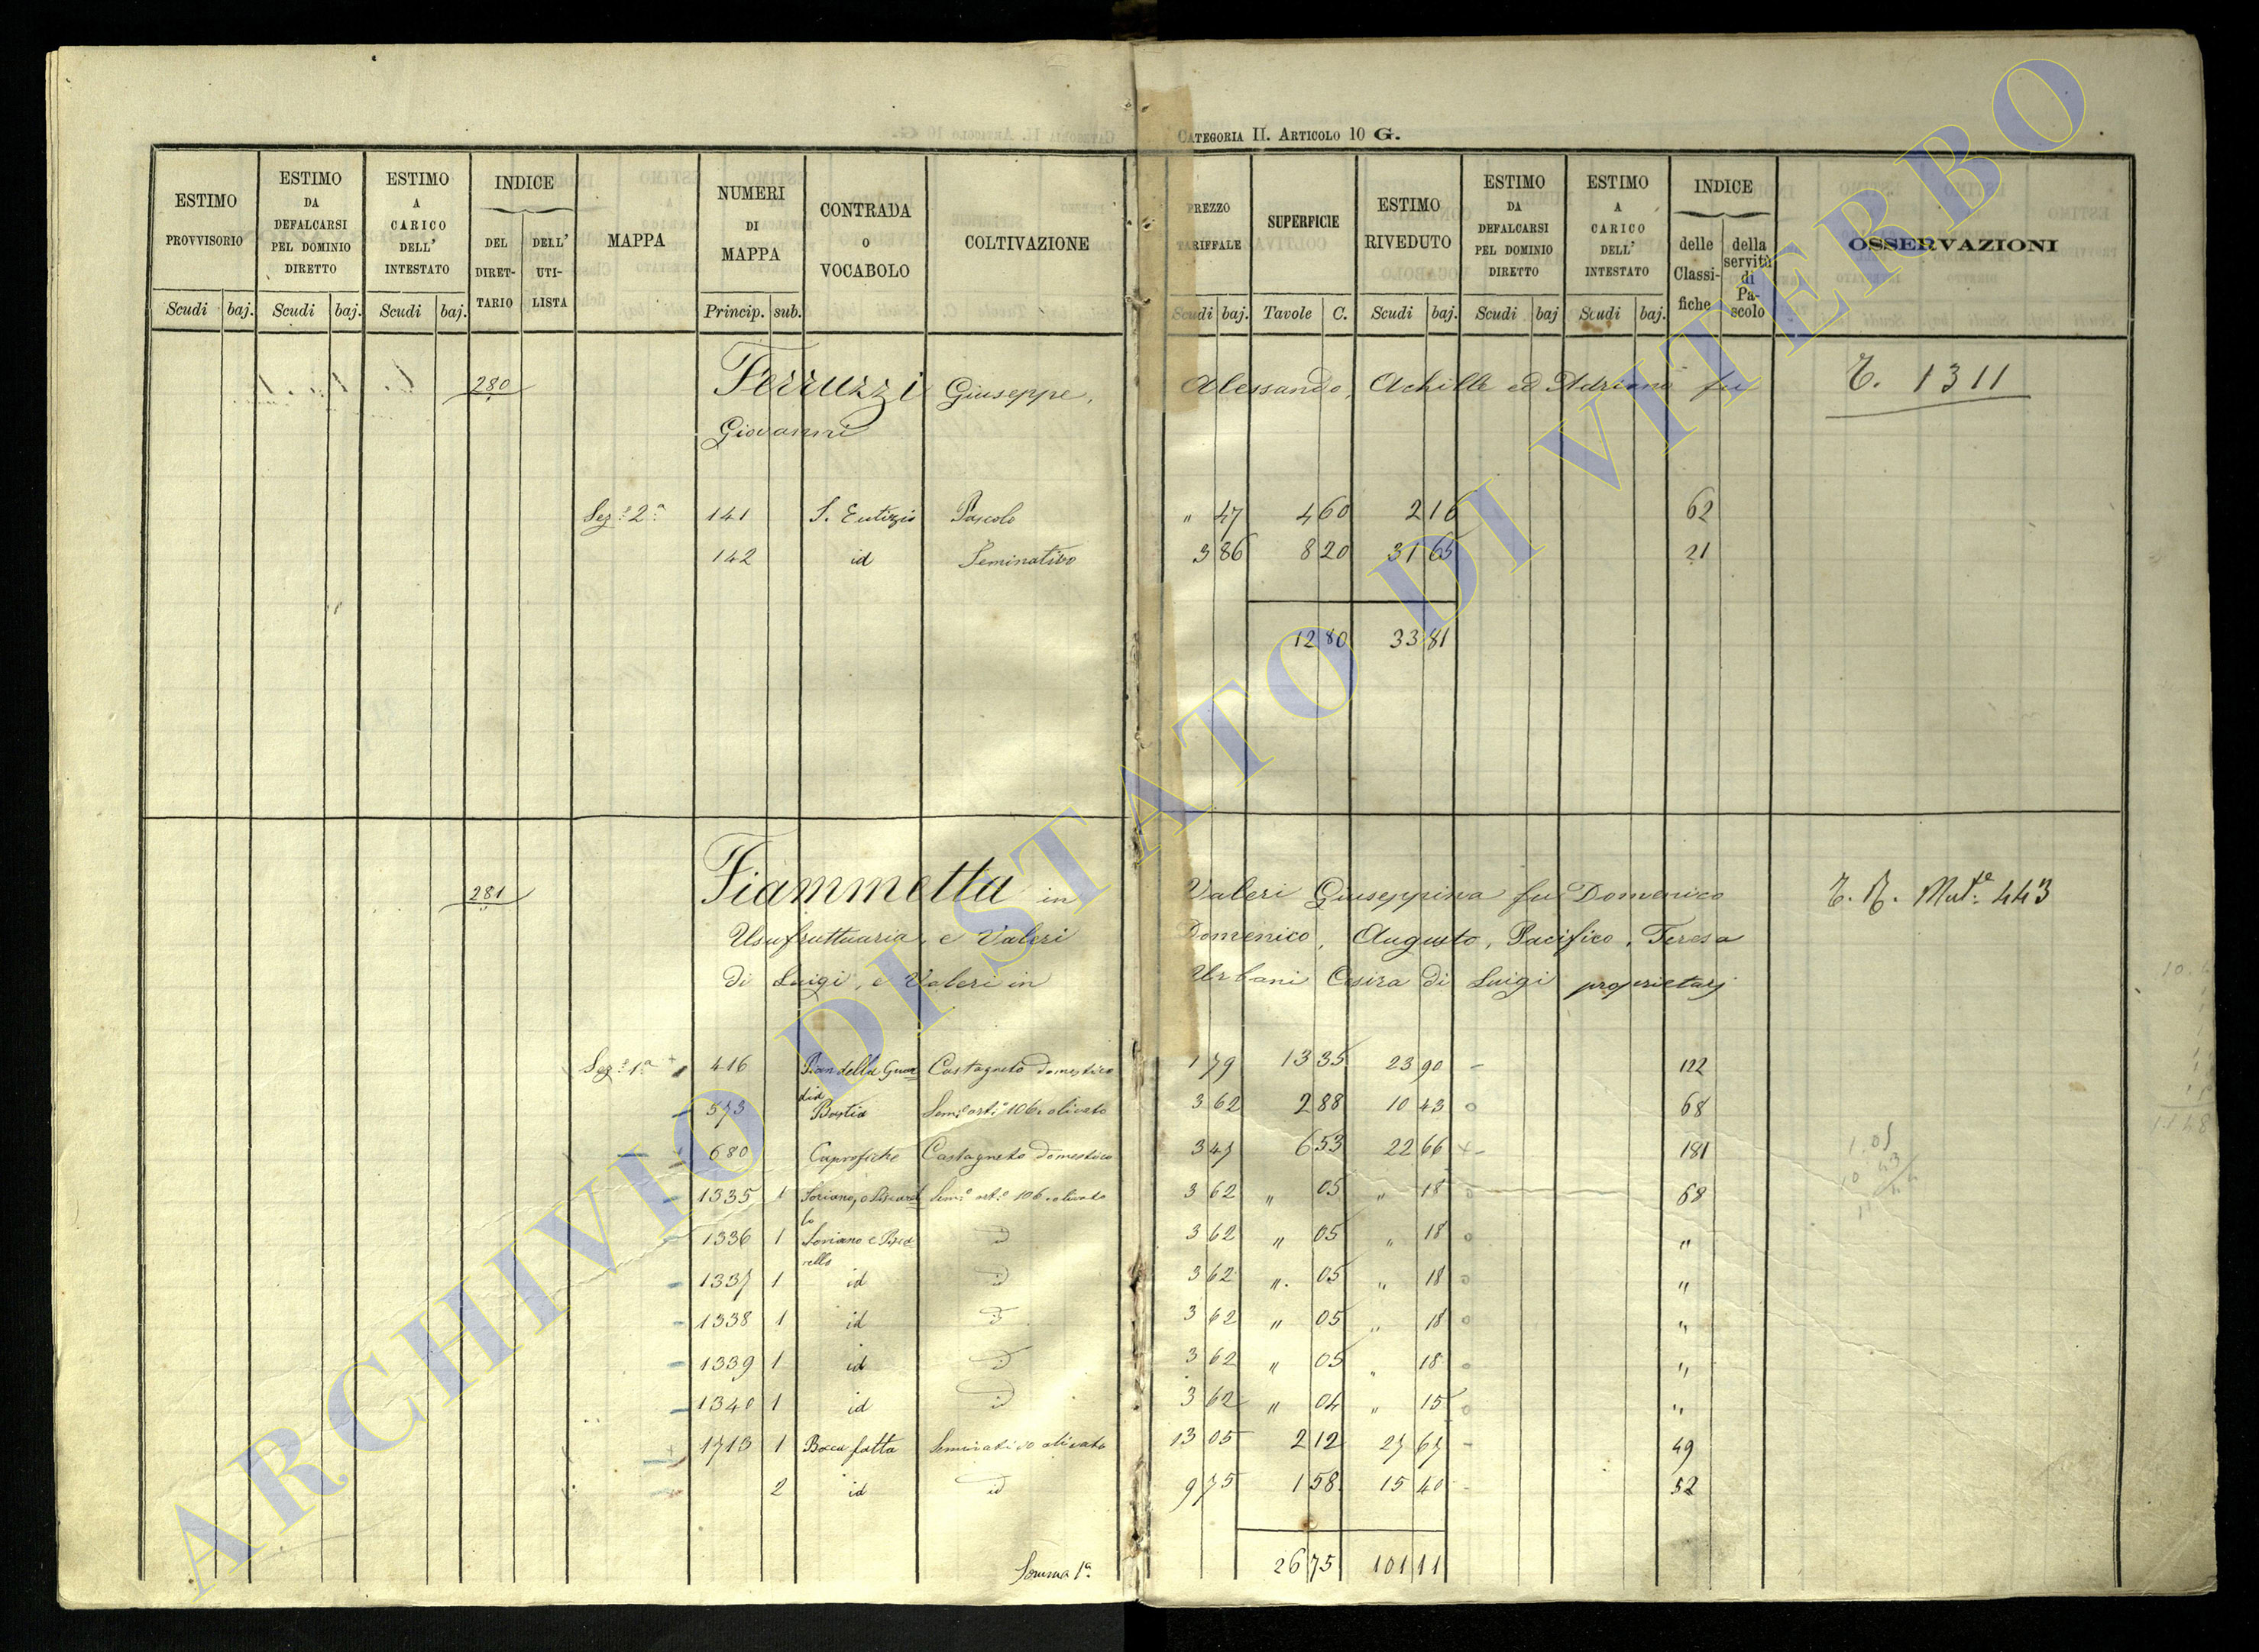 CATEGORIA II. ARTICOLO 10 G.
ESTIMO PROVVISORIO
ESTIMO DA DEFALCARSI PEL DOMINIO DIRETTO
ESTIMO A CARICO DELL' INTESTATO
INDICE
DEL DIRET-TARIO
DELL' UTI-LISTA
MAPPA
NUMERI DI MAPPA
CONTRADA O VOCABOLO
COLTIVAZIONE
PREZZO TARIFFALE
SUPERFICIE
ESTIMO RIVEDUTO
ESTIMO DA DEFALCARSI PEL DOMINIO DIRETTO
ESTIMO A CARICO DELL' INTESTATO
INDICE
delle Classi-fiche
della servitù di Pa-scolo
OSSERVAZIONI
Scudi baj. Scudi baj. Scudi baj. Princip. sub. Scudi baj. Tavole C. Scudi baj. Scudi baj Scudi baj.
280 Ferruzzi Giuseppe, Alessandro, Achille ed Adriano fu T. 1311
Giovanni
Sez.e 2a 141 S. Eutizio Pascolo " 47 4 60 2 16 62
142 id Seminativo 3 86 8 20 31 65 21
12 80 33 81
281 Fiammetta in Valeri Giuseppina fu Domenico T. R. Mut.e 443
Usufruttuaria, e Valeri Domenico, Augusto, Pacifico, Teresa
di Luigi, e Valeri in Urbani Cesira di Luigi proprietarj
Sez.e 1a 416 Pian della Guar= Castagneto domestico 1 79 13 35 23 90 122
dia
573 Bastia Sem.o art.o 106 olivato 3 62 2 88 10 43 68
680 Caprofiche Castagneto domestico 3 47 6 53 22 66 181
1335 1 Soriano, o Sem.o art.o 106 olivato 3 62 " 05 " 18 68
lo
1336 1 Soriano e id 3 62 " 05 " 18 "
rello
1337 1 id id 3 62 " 05 " 18 "
1338 1 id id 3 62 " 05 " 18 "
1339 1 id id 3 62 " 05 " 18 "
1340 1 id id 3 62 " 04 " 15 "
1713 1 Bocca fatta Seminativo olivato 13 05 2 12 27 67 49
2 id id 9 75 1 58 15 40 52
Somma 1a 26 75 101 11
ARCHIVIO DI STATO DI VITERBO